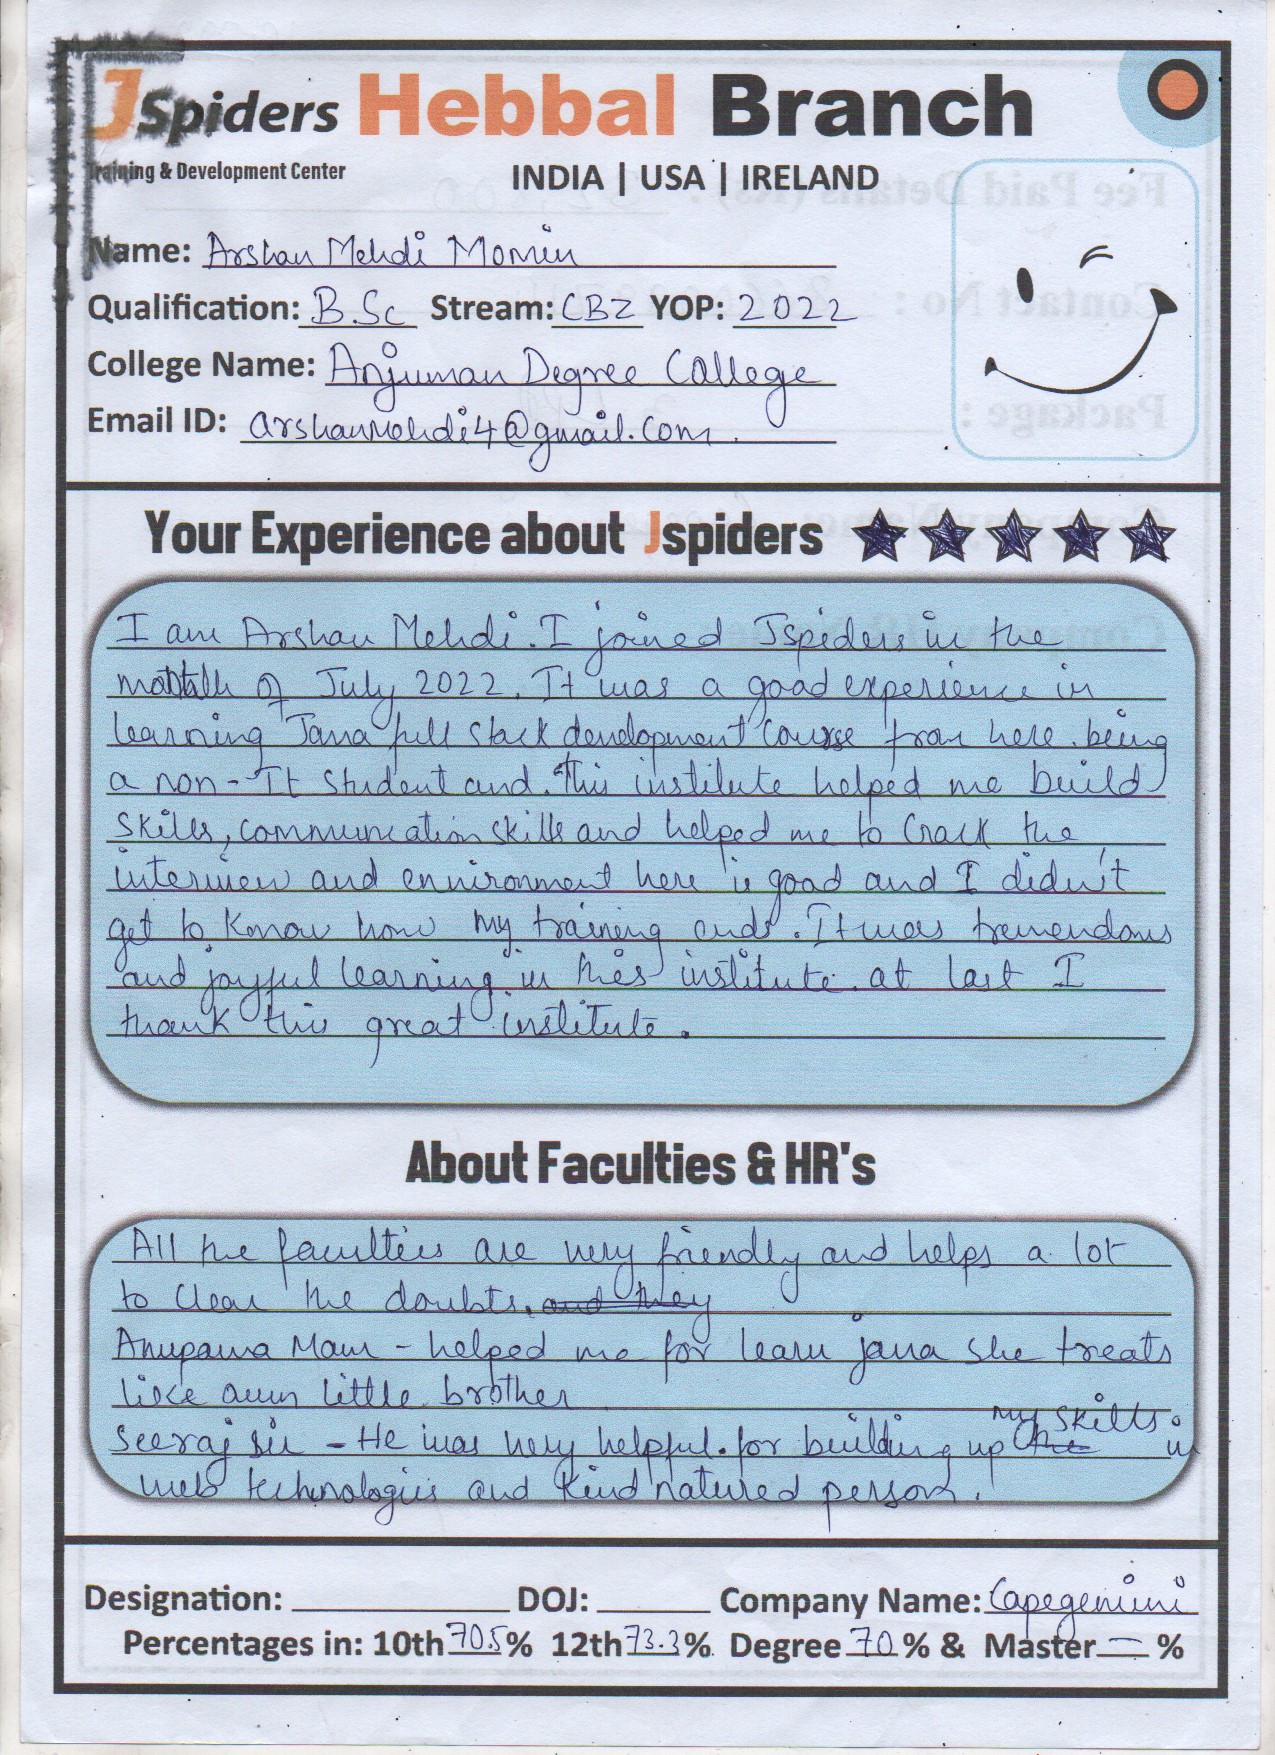 JSpiders Hebbal Branch
Training & Development Center
INDIA | USA | IRELAND
Name: Arshan Mehdi Momin
Qualification: B.Sc Stream: CBZ YOP: 2022
College Name: Anjuman Degree College
Email ID: arshanmehdi4@gmail.com.
Your Experience about Jspiders
I am Arshan Mehdi. I joined Jspiders in the
month of July 2022. It was a good experience in
learning Java full stack development course from here. being
a non-It student and. This institute helped me build
skills, communication skills and helped me to crack the
interview and environment here is good and I didn't
get to know how my training ends. It was tremendous
and joyful learning in this institute. at last I
thank this great institute.
About Faculties & HR's
All the faculties are very friendly and helps a lot
to clear the doubts. and they
Anupama Mam - helped me for learn java she treats
like own little brother
Seeraj sir - He was very helpful. for building up the my skills. in
web technologies and kind natured person.
Designation: DOJ: Company Name: Capegemini
Percentages in: 10th 70.5% 12th 73.3% Degree 70% & Master — %